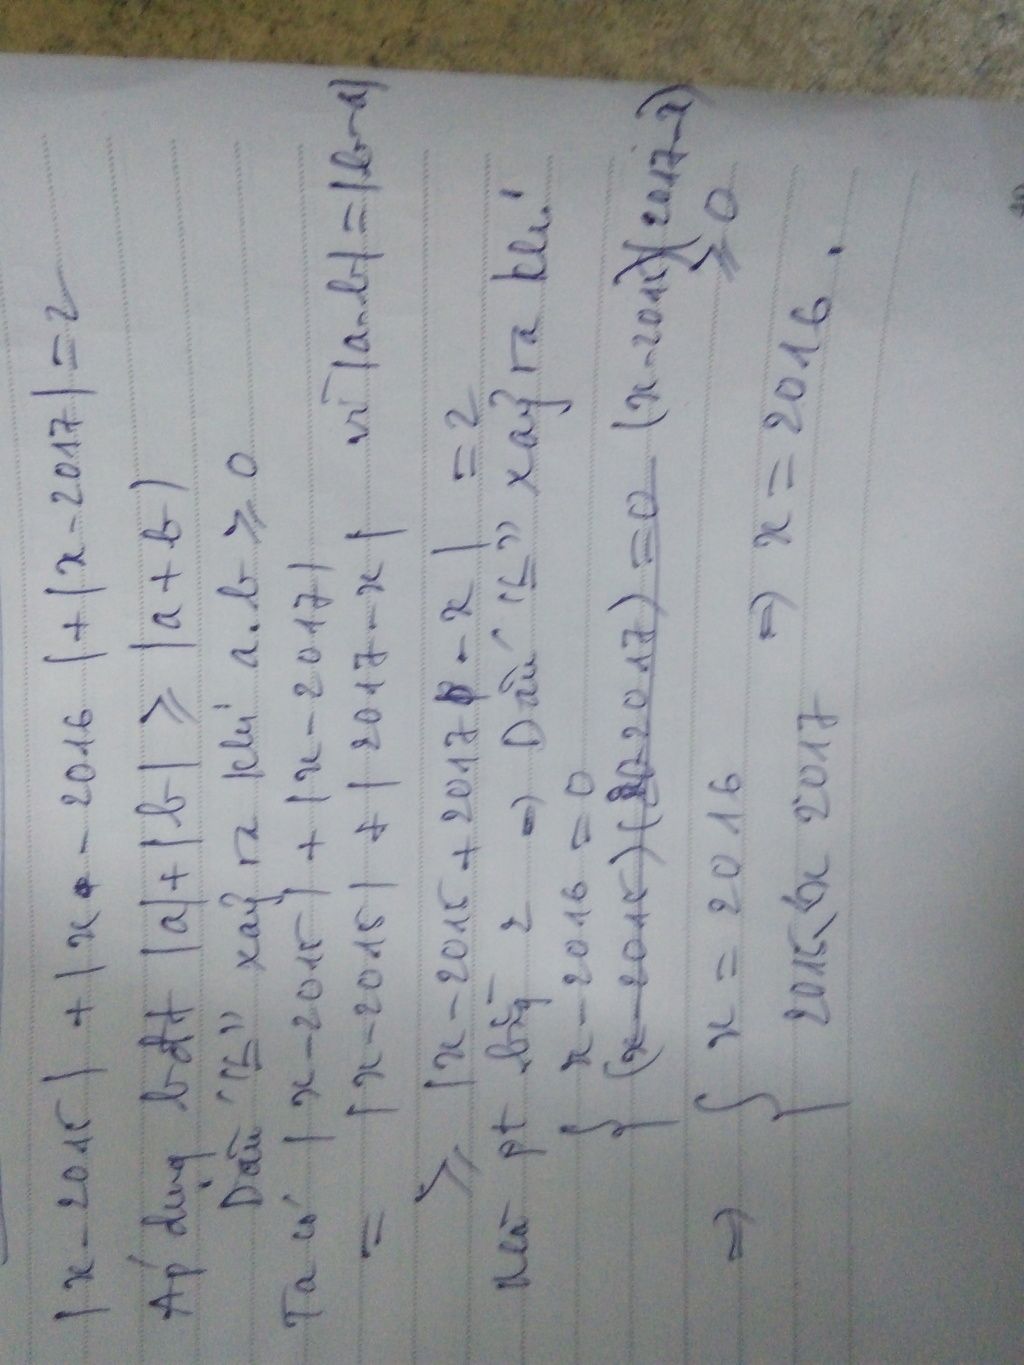 |x-2015| + |x-2016| + |x-2017| = 2
Áp dụng bđt |a|+|b| ⩾ |a+b|
Dấu "=" xảy ra khi a.b ⩾ 0
Ta có |x-2015| + |x-2017|
= |x-2015| + |2017-x| vì |a-b| = |b-a|
⩾ |x-2015+2017-x| = 2
Mà pt bằng 2 => Dấu "=" xảy ra khi
{ x-2016=0
(x-2015)(2017-x) ⩾ 0
=> { x = 2016
2015 ≤ x ≤ 2017 => x = 2016.